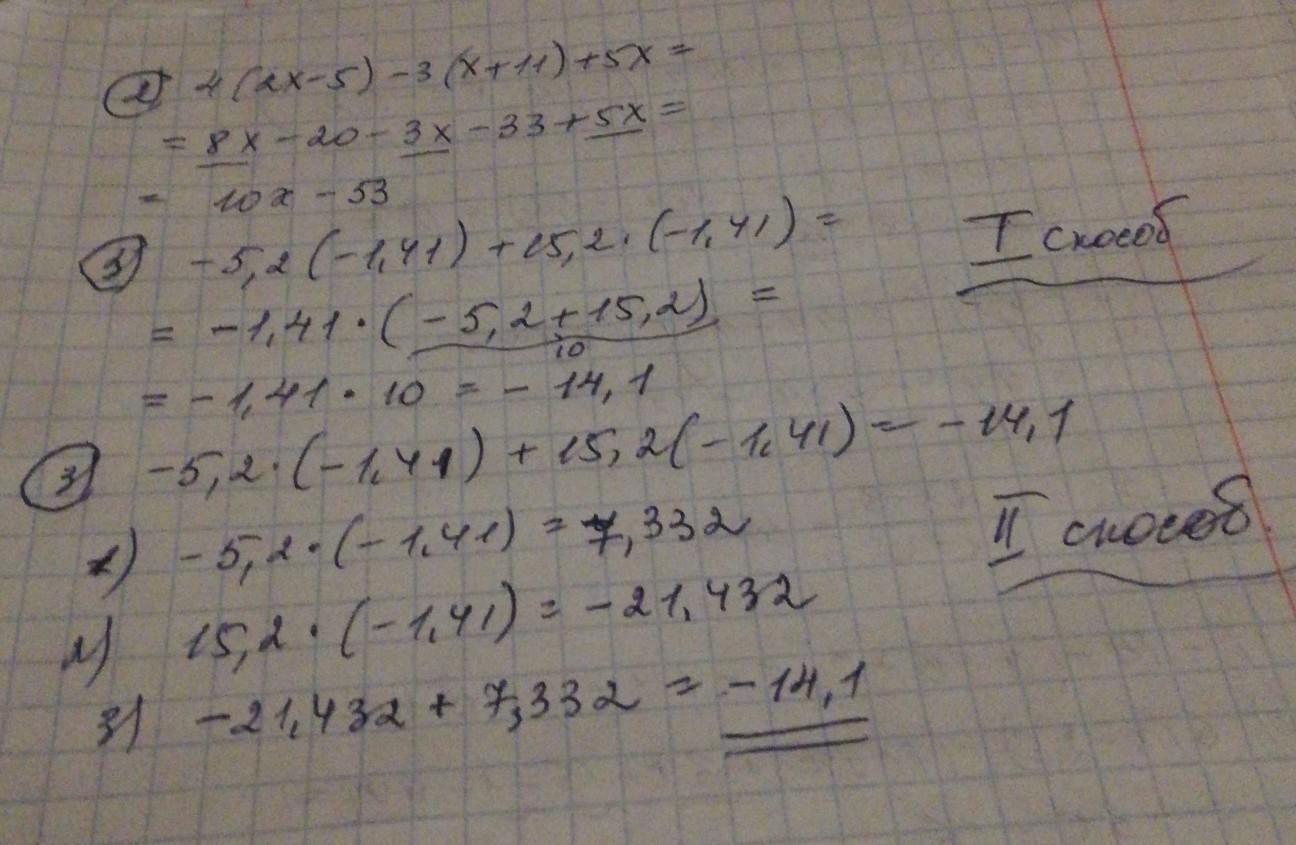 ② 4(2x-5)-3(x+11)+5x=
= 8x-20-3x-33+5x=
= 10x-53
③ -5,2(-1,41)+15,2·(-1,41)= I способ
= -1,41·(-5,2+15,2)=
10
= -1,41·10 = -14,1
③ -5,2·(-1,41)+15,2(-1,41)= -14,1
1) -5,2·(-1,41)=7,332 II способ.
2) 15,2·(-1,41)=-21,432
3) -21,432+7,332=-14,1